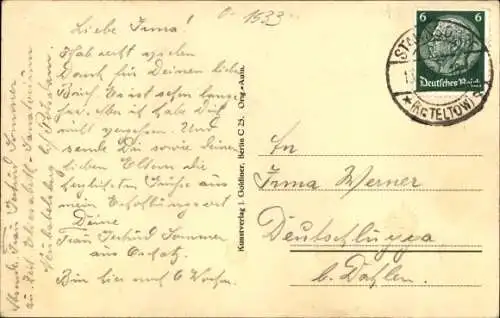 0-1533
Liebe Irma!
Hab recht vielen
Dank für Deinen lieben
Brief. Er ist schon lange
her. Aber ich habe Dich
nicht vergessen. Und
sende Dir sowie deinen
lieben Eltern die
herzlichsten Grüße aus
mein Erholungsort
Deine
Frau Gertrud Sommer
aus Oschatz.
Bin hier noch 6 Wochen.
Frau Gertrud Sommer
zu Zt. Sanatorium
Neubabelsberg b/ Potsdam.
Kunstverlag J. Goldiner, Berlin C 25. Org.-Aufn.
6 6
Deutsches Reich
(KR. TELTOW)
An
Irma Werner
Deutschluppa
b. Dahlen.